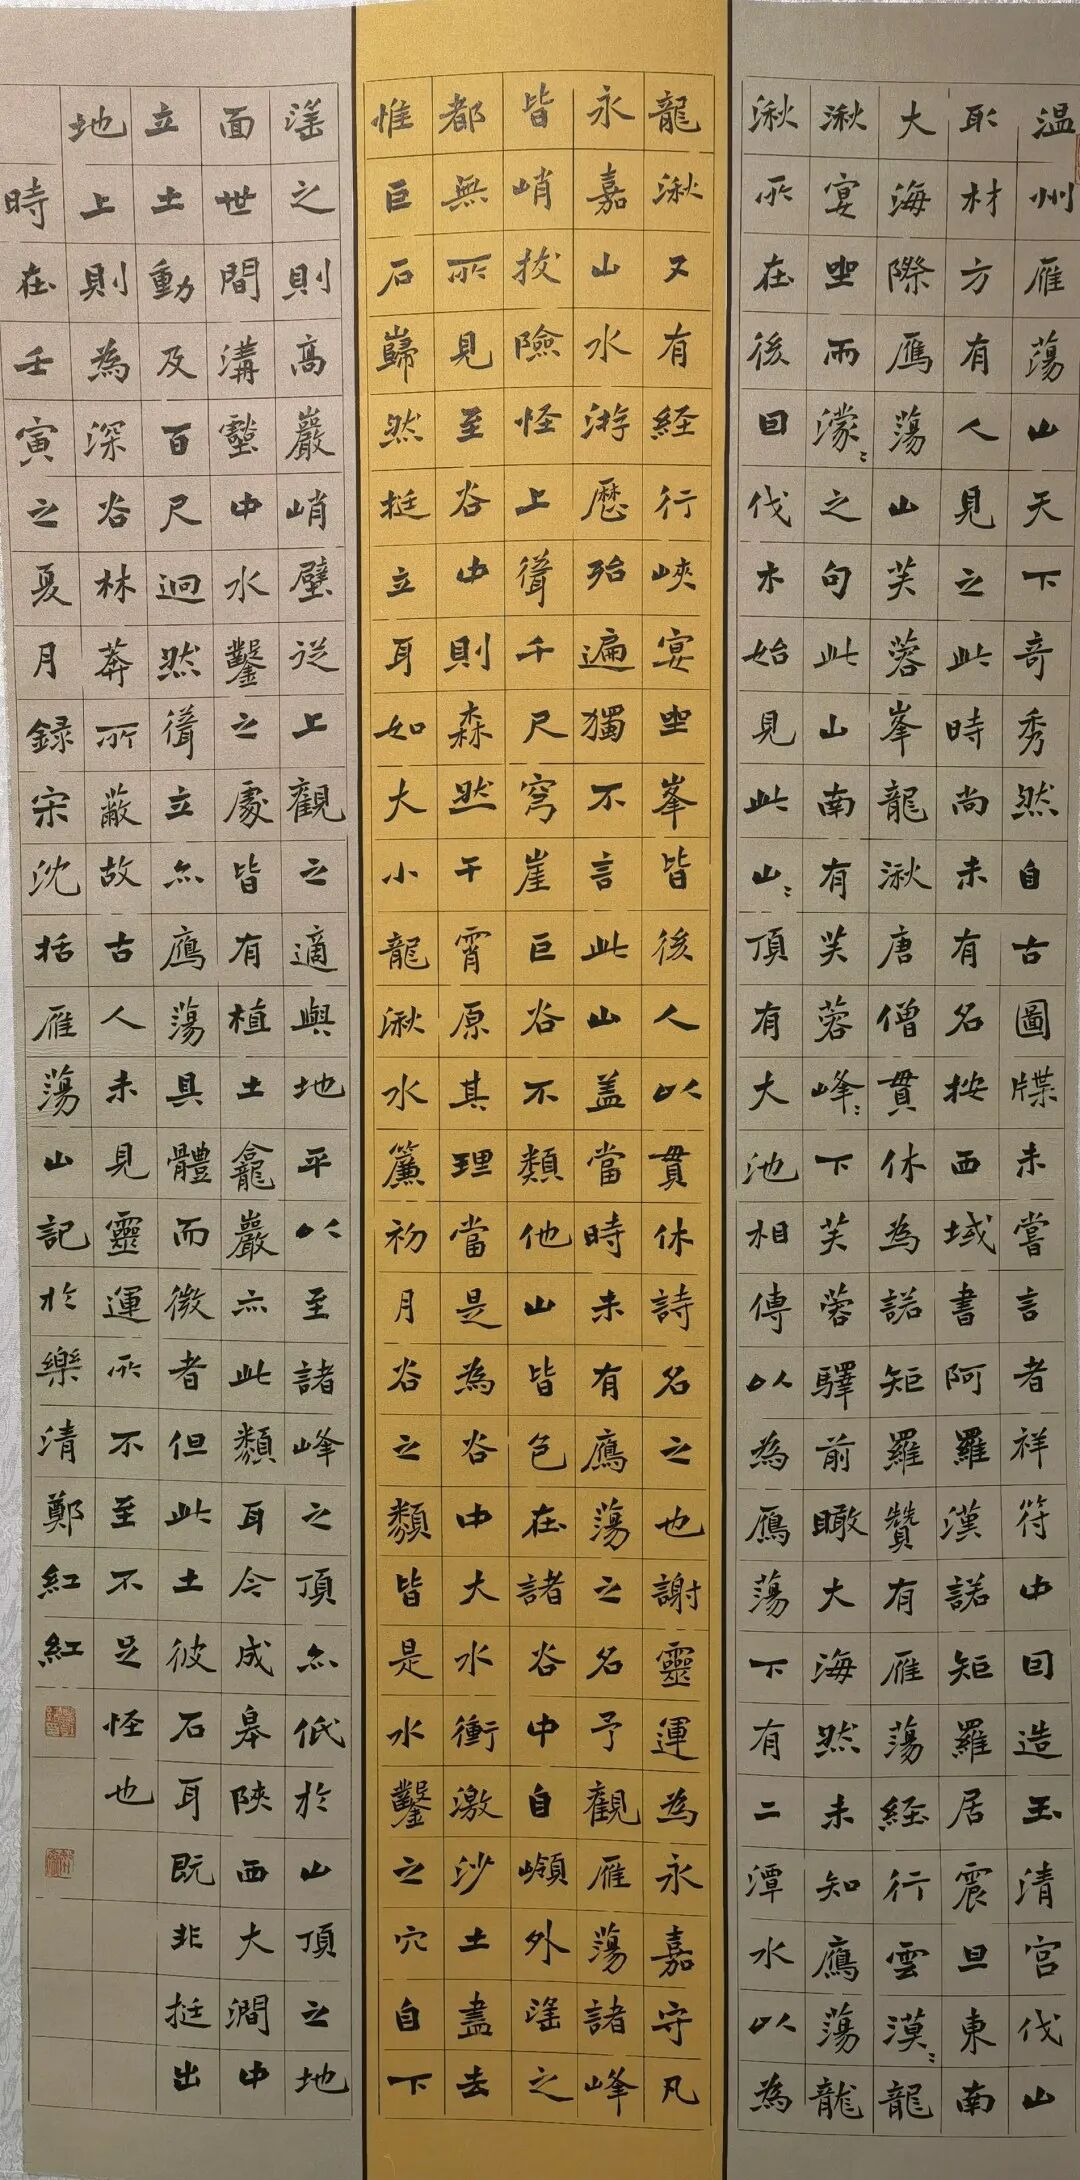 温州雁蕩山天下奇秀然自古圖牒未嘗言者祥符中因造玉清宫伐山
取材方有人見之此時尚未有名按西域書阿羅漢諾矩羅居震旦東南
大海際鴈蕩山芙蓉峯龍湫唐僧貫休為諾矩羅贊有雁蕩經行雲漠〻龍
湫宴坐雨濛〻之句此山南有芙蓉峰〻下芙蓉驛前瞰大海然未知鴈蕩龍
湫所在後因伐木始見此山〻頂有大池相傳以為鴈蕩下有二潭水以為
龍湫又有經行峽宴坐峯皆後人以貫休詩名之也謝靈運為永嘉守凡
永嘉山水游歷殆遍獨不言此山蓋當時未有鴈蕩之名予觀雁蕩諸峰
皆峭拔險怪上聳千尺穹崖巨谷不類他山皆包在諸谷中自嶺外望之
都無所見至谷中則森然干霄原其理當是為谷中大水衝激沙土盡去
惟巨石巋然挺立耳如大小龍湫水簾初月谷之類皆是水鑿之穴自下
望之則高巖峭壁從上觀之適與地平以至諸峰之頂亦低於山頂之地
面世間溝壑中水鑿之處皆有植土龕巖亦此類耳今成皋陝西大澗中
立土動及百尺迥然聳立亦鴈蕩具體而微者但此土彼石耳既非挺出
地上則為深谷林莽所蔽故古人未見靈運所不至不足怪也
時在壬寅之夏月録宋沈括雁蕩山記於樂清鄭紅紅